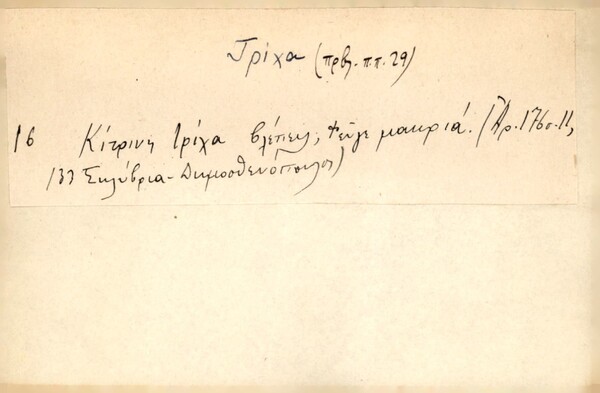 Τρίχα (πρβλ. π.π. 29)
16 Κίτρινη τρίχα βλέπεις; Φεύγε μακριά. (Αρ. 1760. 11,
133 Σηλύβρια - Δημοσθενόπουλος)